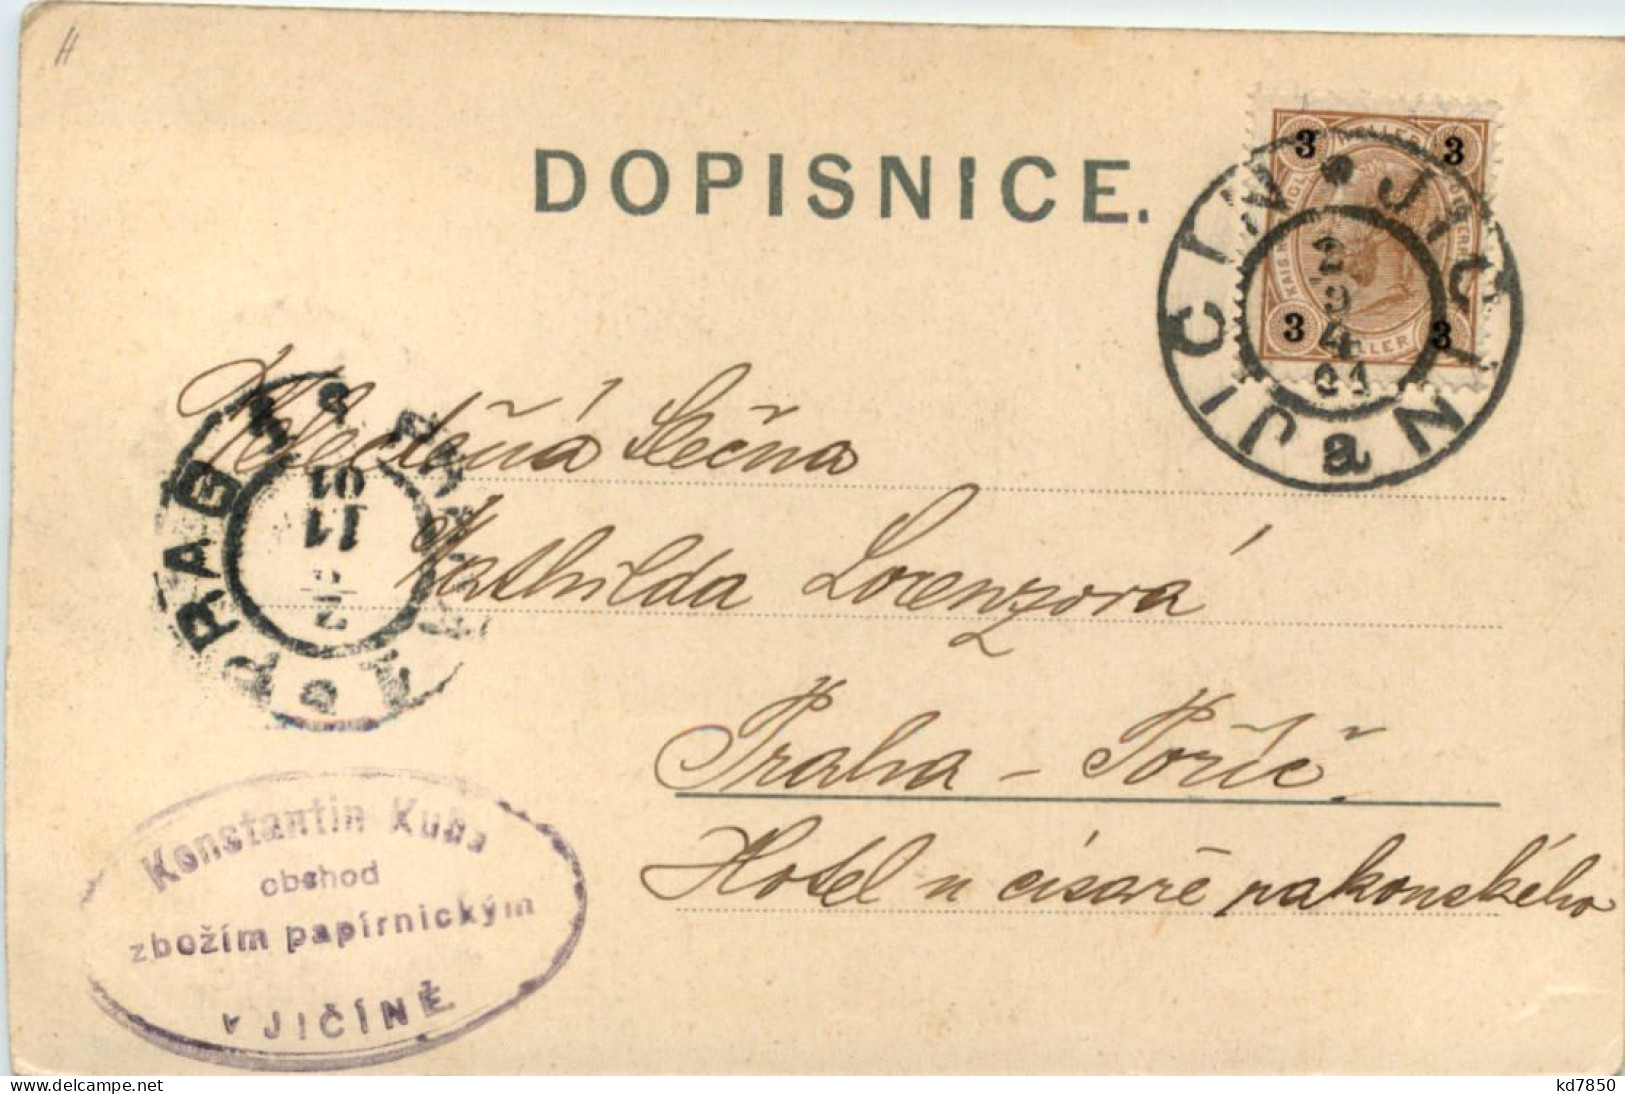 H
DOPISNICE.
3 HELLER 3
3 3
JIČIN JIČÍN a
29 4 01
Velectěná Slečna
Mathilda Lorenzová
Praha – Poříč.
Hotel u císaře rakouského
PRAG PRAHA
01
11
2
Konstantin Kuba
obchod
zbožím papírnickým
v JIČÍNĚ
delcampe.net
kd7850